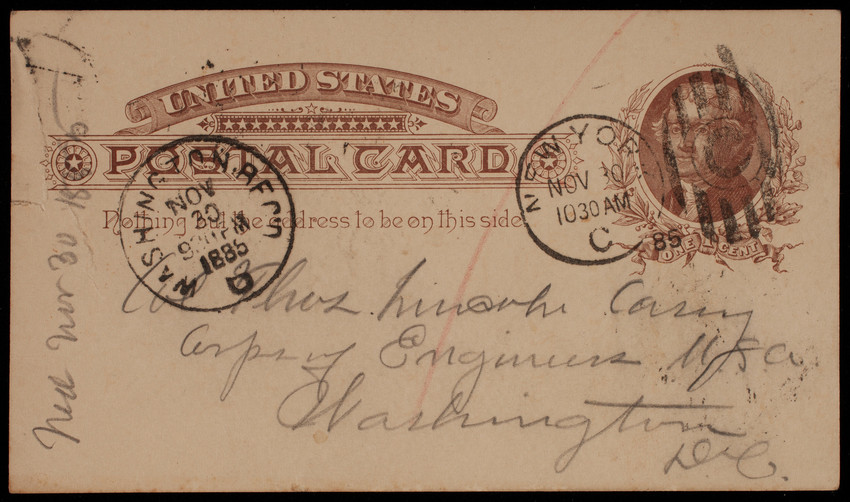 UNITED STATES
POSTAL CARD
Nothing but the address to be on this side
WASHINGTON REC'D
NOV
30
PM
1885
NEW YORK
NOV 30
1030 AM
C 85
C
ONE CENT
Col Thos Lincoln Casey
Corps of Engineers USA
Washington
D.C.
Ned Nov 30 1885